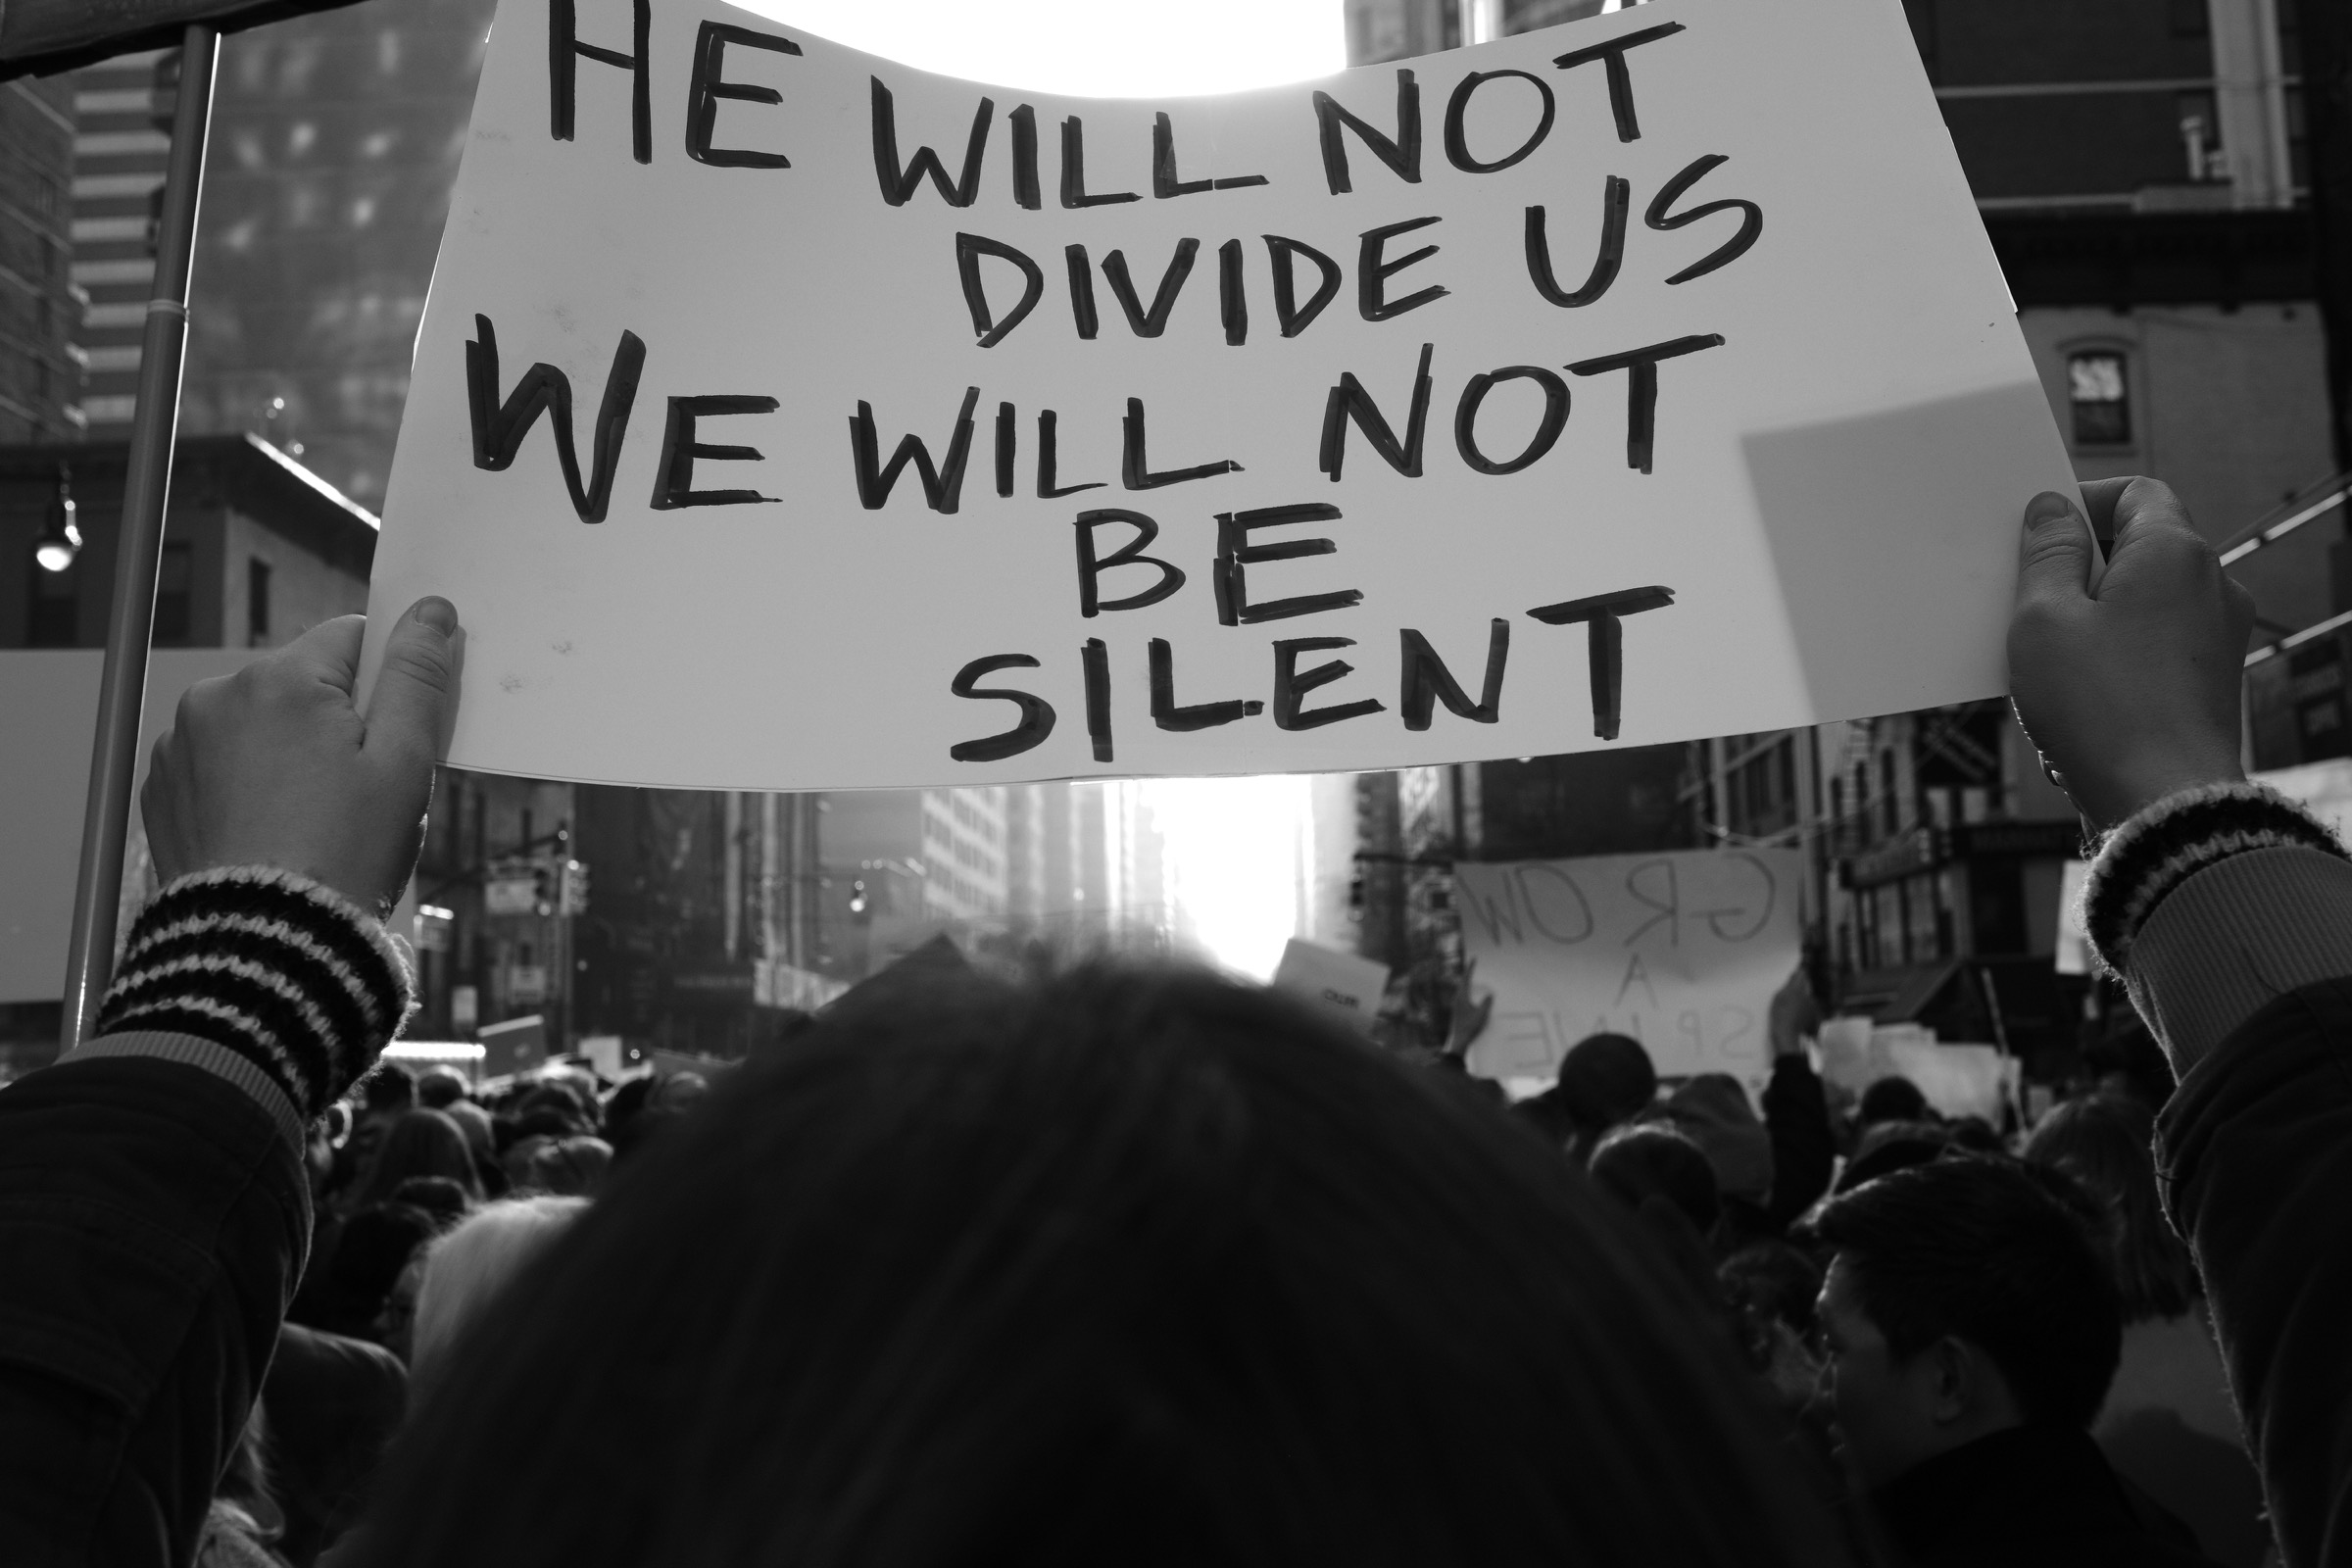 HE WILL NOT
DIVIDE US
WE WILL NOT
BE
SILENT
GROW
A
SPINE